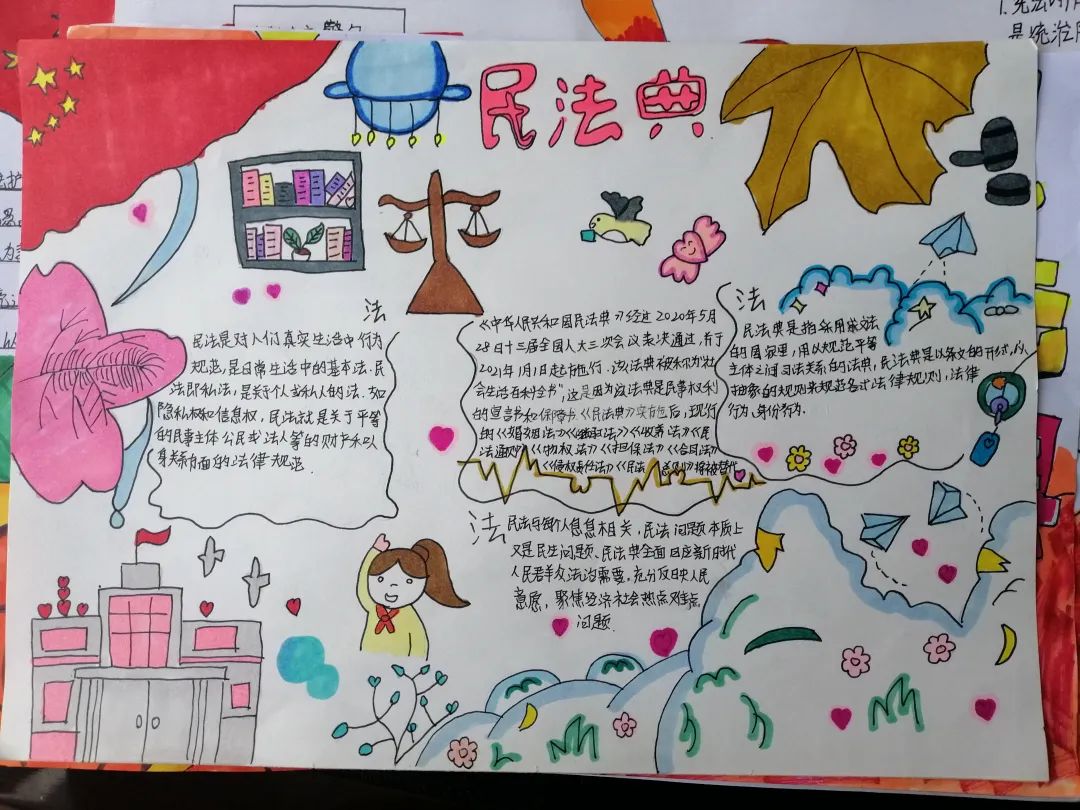 民法典
法
民法是对人们真实生活中行为
规范,是日常生活中的基本法.民
法即私法,是关于个人或私人的法.如
隐私权和信息权,民法就是关于平等
的民事主体公民或法人等的财产和人
身关系方面的法律规范.
《中华人民共和国民法典》经过2020年5月
28日十三届全国人大三次会议表决通过,并于
2021年1月1日起施行.该法典被称为“社
会生活百科全书”,这是因为该法典是民事权利
的宣言书和保障书.《民法典》实施后,现行
的《婚姻法》《继承法》《收养法》《民
法通则》《物权法》《担保法》《合同法》
《侵权责任法》《民法总则》将被替代
法
民法典是指采用成文法
的国家里,用以规范平等
主体之间司法关系的法典,民法典是以条文的形式,以
抽象的规则来规范各式法律规则,法律
行为、身份行为.
法
民法与每个人息息相关,民法问题本质上
又是民生问题、民法典全面回应新时代
人民群众法治需要,充分反映人民
意愿,聚焦经济社会热点难点
问题.
是统治